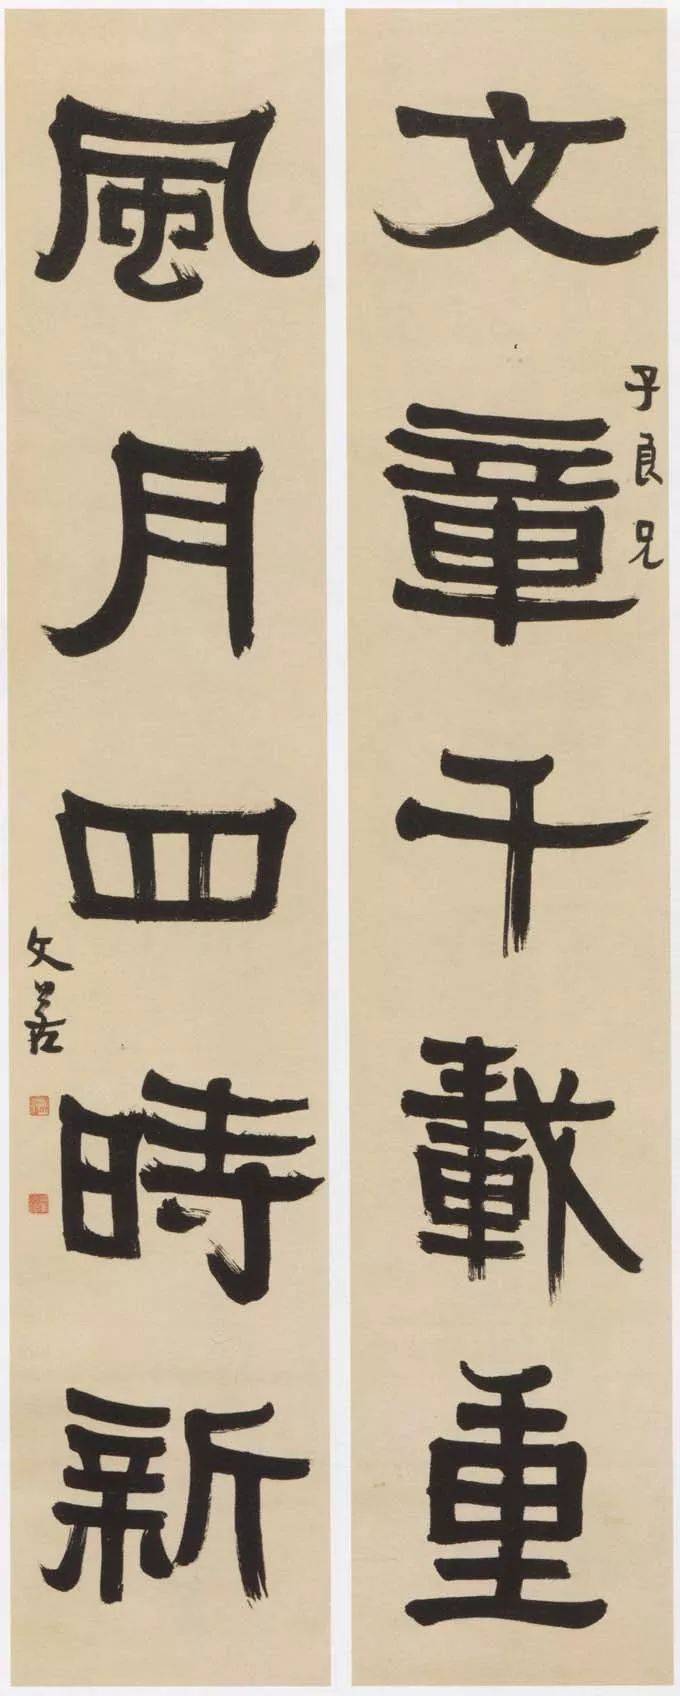 文章千載重
子良兄
風月四時新